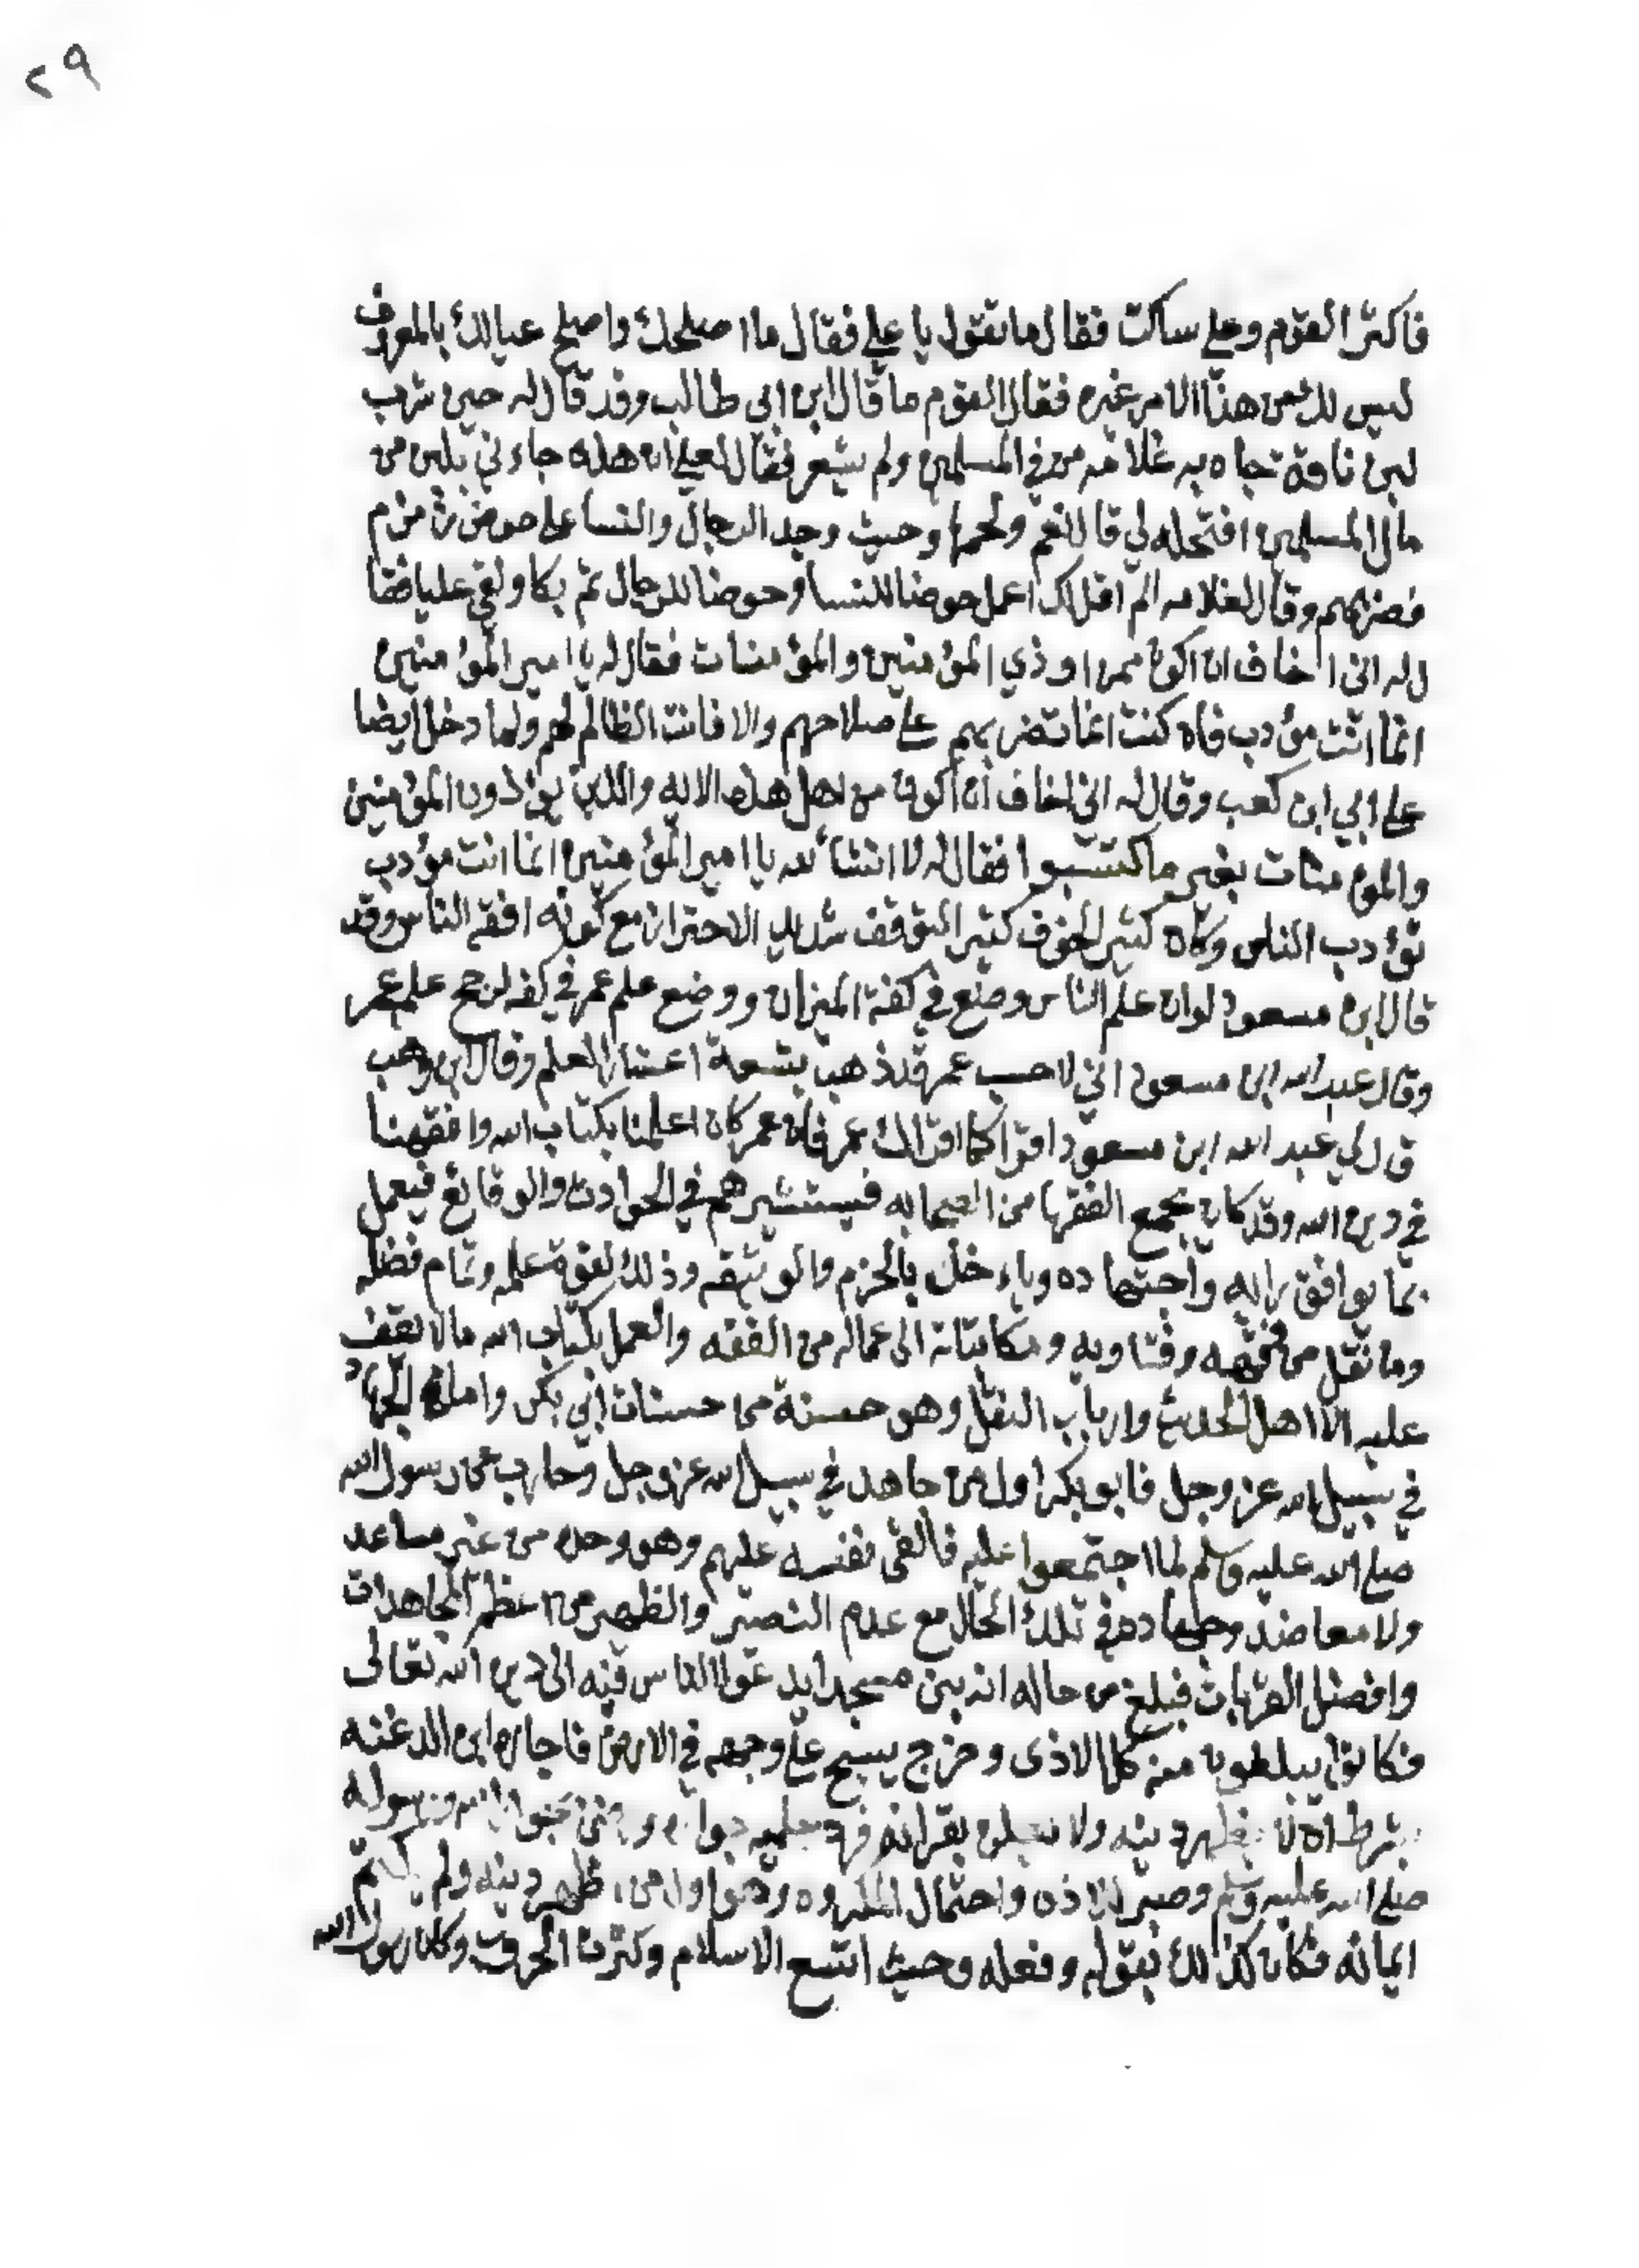 ٢٩
فاكثر القوم وعلي ساكت فقال ما تقول يا علي فقال ما اصلحك واصلح عيالك بالمعروف
ليس لك من هذا الامر غيره فقال القوم ما قال ابن ابي طالب وقد قال له حين شرب
لبن ناقة جاه به غلامه من في المسلمين ولم يشعر فقال لعلي ان هذه جاءني بلبن من
مال المسلمين افتحله لي قال نعم ولحمها وحيث وجد الرجال والنسا على حوض زمزم
فضربهم وقال لغلامه الم اقل لك اعمل حوضا للنسا وحوضا للرجال ثم بكا ولقي عليا فقا
ل له اني اخاف ان اكون ممن اوذي المؤمنين والمؤمنات فقال له يا امير المؤمنين
انما انت مؤدب فان كنت انما تضربهم على صلاحهم والا فانت الظالم لهم ولما دخل ايضا
على ابي ابن كعب وقال له اني اخاف ان اكون من اهل هذه الايه والذين يؤذون المؤمنين
والمومنات بغير ما كتسبوا فقال له لا انشا لله يا امير المؤمنين انما انت مؤدب
تؤدب الناس وكان كثير الخوف كثير التوقف شديد الاحتراز مع كونه افقه الناس وقد
قال ابن مسعود لو ان علم الناس وضع في كفة الميزان ووضع علم عمر في كفه لرجح علم عمر
وقال عبد الله ابن مسعود اني لاحسب عمر قد ذهب بتسعة اعشار العلم وقال ابن وهب
قال لي عبد الله ابن مسعود اقرا كما اقراك عمر فان عمر كان اعلمنا بكتاب الله وافقهنا
في دين الله وقد كان يجمع الفقها من الصحابه فيستشيرهم في الحوادث والوقائع فيعمل
بما يوافق رايه واجتهاده وياءخذ بالحزم والوثيقه وذلك لقوة علمه وتمام فضله
وما نقل من فقهه وفتاويه ومكاتباته الى عماله من الفقه والعمل بكتاب الله مالا يقف
عليه الا اهل الحديث وارباب النقل وهو حسنة من حسنات ابي بكر واما الجهاد
في سبيل الله عز وجل فابو بكر اول من جاهد في سبيل الله عز وجل وحارب عن رسول الله
صلى الله عليه وسلم لما اجتمعوا عليه فالقى نفسه عليهم وهو وحده من غير مساعد
ولا معاضد وجهاده في تلك الحال مع عدم النصير والظهير من اعظم المجاهدات
وافضل القربات فبلغ من حاله انه بنى مسجدا يدعوا الناس فيه الى دين الله تعالى
فكانوا يبلغون منه كل الاذى وخرج يسيح على وجهه في الارض فاجاره ابن الدغنه
بشرط ان لا يظهر دينه ولا يعلن بقرانه فرد عليه جواره ورضي بجوار الله ورسوله
صلى الله عليه وسلم وصبر للاذى واحتمال المكروه وهو اول من اظهر دينه ولم يكتم
ايمانه فكان كذلك بقوله وفعله وحيث اتسع الاسلام وكثرت الحروب وكان رسول الله